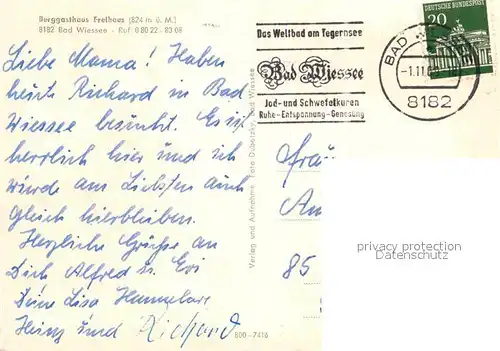 Berggasthaus Freihaus (824 m ü. M.)
8182 Bad Wiessee - Ruf 0 80 22 - 83 08
Liebe Mama! Haben
heute Richard in Bad
Wiessee besucht. Es ist
herrlich hier und ich
würde am Liebsten auch
gleich hierbleiben.
Herzliche Grüsse an
Dich Alfred u. Evi
Deine Lisa
Heinz und Richard
Verlag und Aufnahme: Foto Dubelzky, Bad Wiessee
800 - 7416
Das Weltbad am Tegernsee
Bad Wiessee
Jod- und Schwefelkuren
Ruhe - Entspannung - Genesung
BAD
-1.11.
8182
DEUTSCHE BUNDESPOST
20
85
privacy protection
Datenschutz